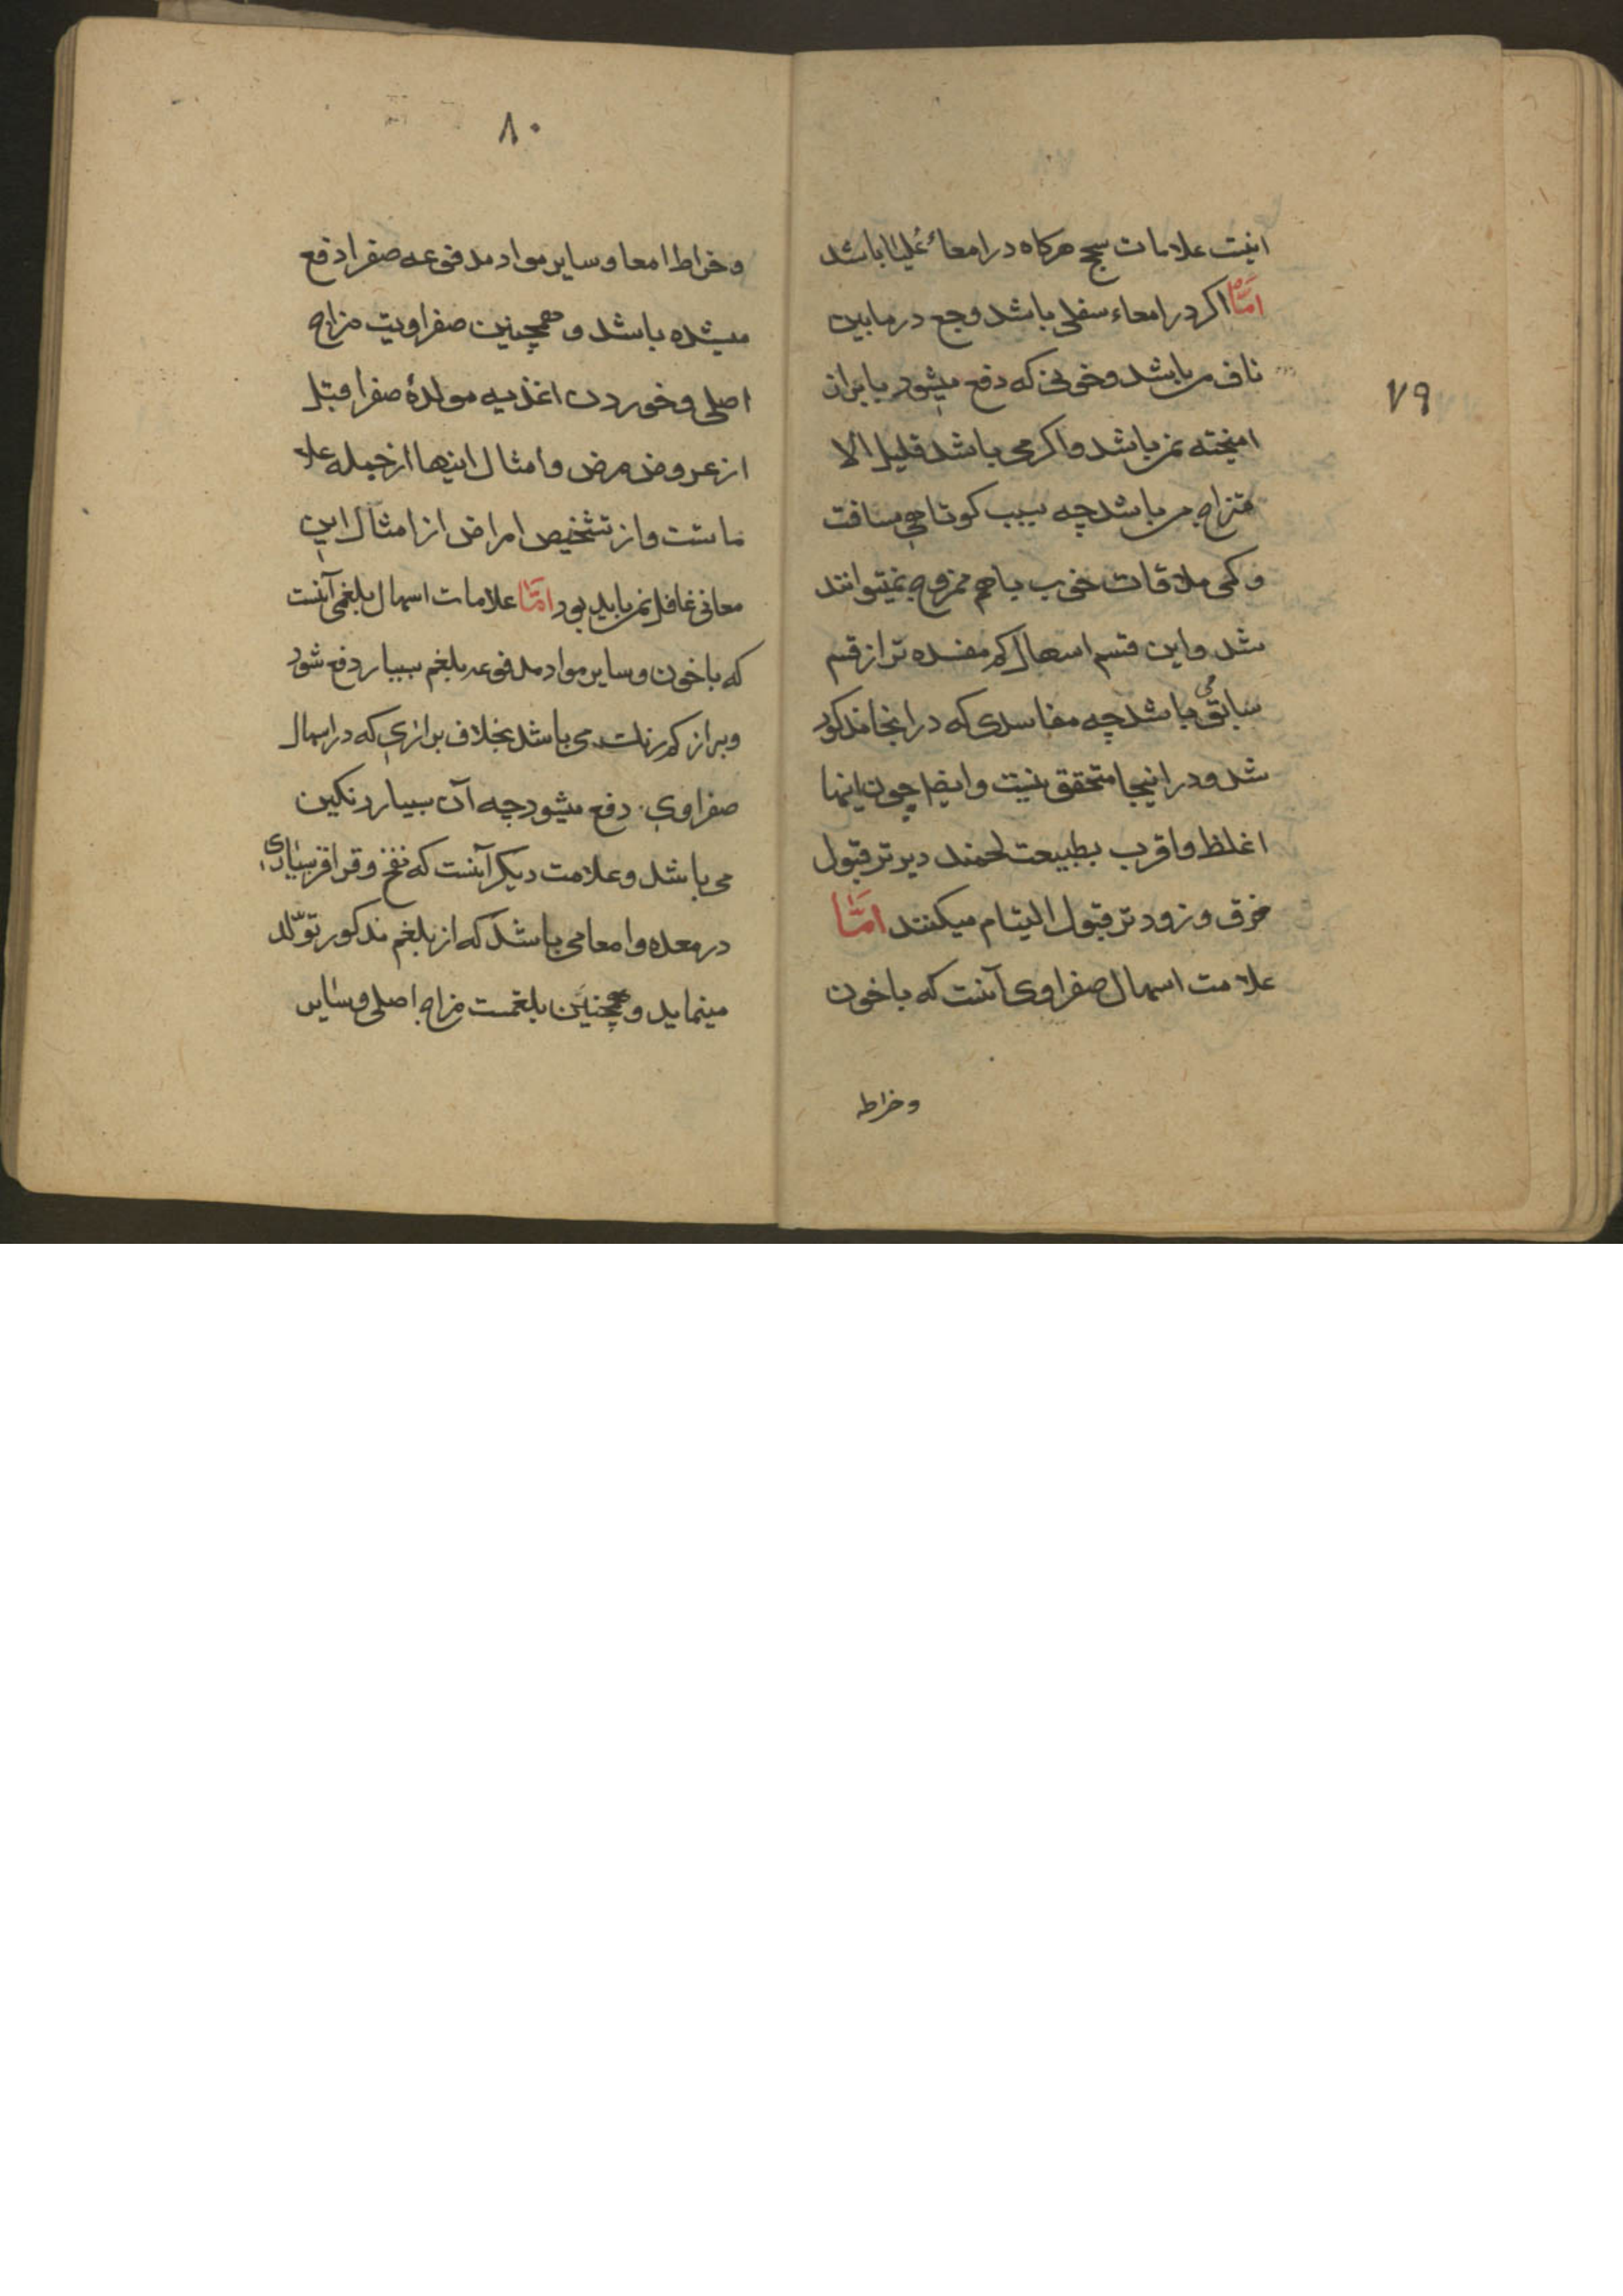 ۷۹
اینست علامات سحج هرکاه در امعاء عُلیا باشد
امّا اکر در امعاء سفلی باشد وجع در مابین
ناف می باشد و خونی که دفع میشود با براز
امیخته نمی باشد و اکر می باشد قلیل الا
متزاج می باشد چه بسبب کوتاهی مسافت
و کمی ملاقات خوب باهم ممزوج نمیتوانند
شد و این قسم اسهال کم مفسده تر از قسم
سابق می باشد چه مفاسدی که در انجا مذکور
شد و در اینجا متحقق نیست و ایضا چون اینها
اغلظ و اقرب بطبیعت لحمند دیرتر قبول
خرق و زودتر قبول الیتام میکنند امّا
علامت اسهال صفراوی آنست که با خون
وخراطه
۸۰
و خراط امعا و سایر مواد مدفوعه صفرا دفع
میشده باشد و همچنین صفراویت مزاج
اصلی و خوردن اغذیه مولدهٔ صفرا قبل
از عروض مرض و امثال اینها از جمله علا
ماتست و از تشخیص امراض از امثال این
معانی غافل نمی باید بود امّا علامات اسهال بلغمی آنست
که با خون و سایر مواد مدفوعه بلغم بسیار دفع شود
و براز کم رنک می باشد بخلاف برازی که در اسهال
صفراوی دفع میشود چه آن بسیار رنکین
می باشد و علامت دیکر آنست که نفخ و قراقر بسیاری
در معده و امعا می باشد که از بلغم مذکور تولّد
مینماید و همچنین بلغمیت مزاج اصلی و سایر